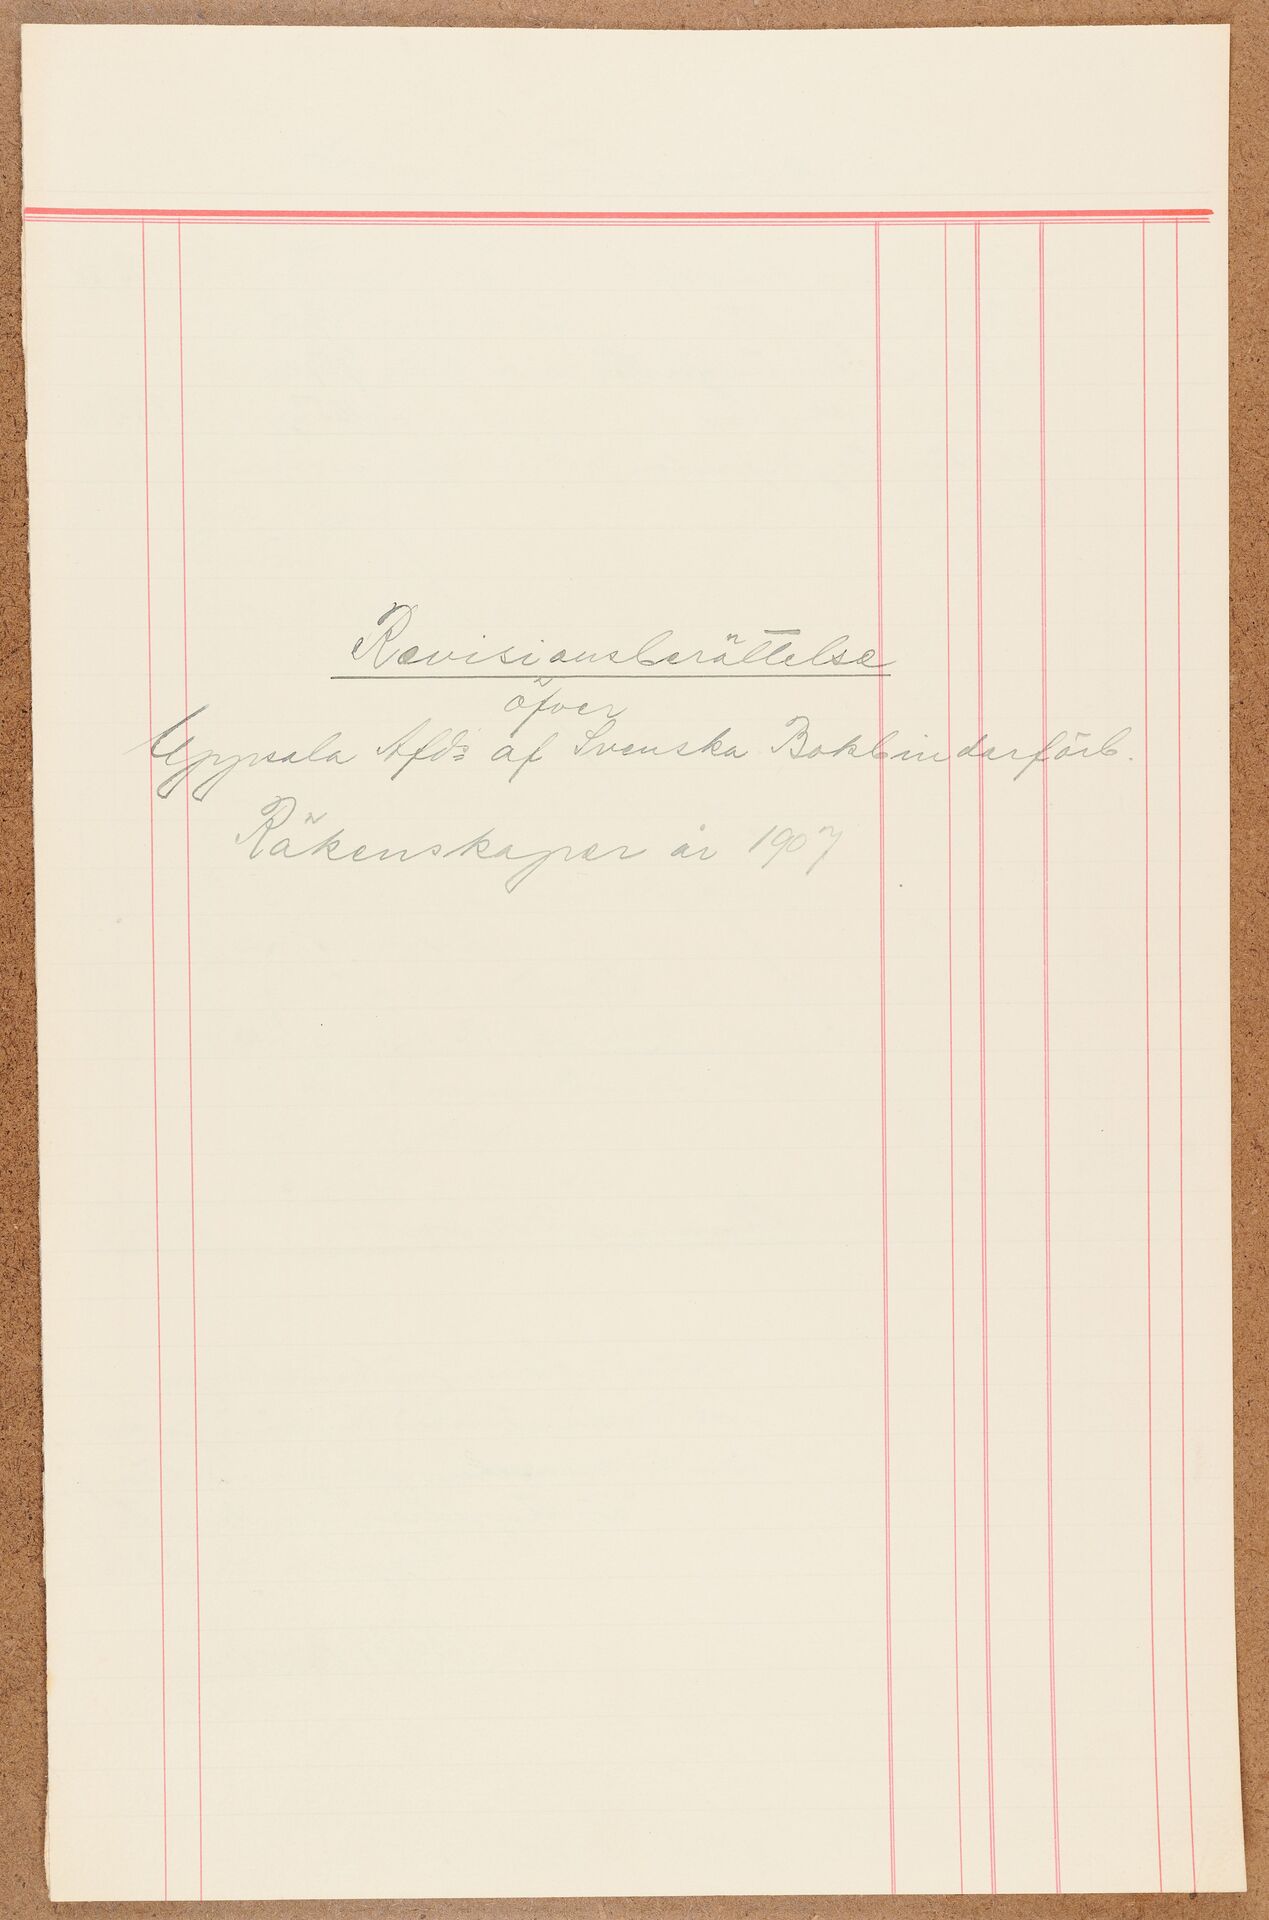 Revisionsberättelse
öfver
Uppsala Afd: af Svenska Bokbindarförb.
Räkenskaper år 1907